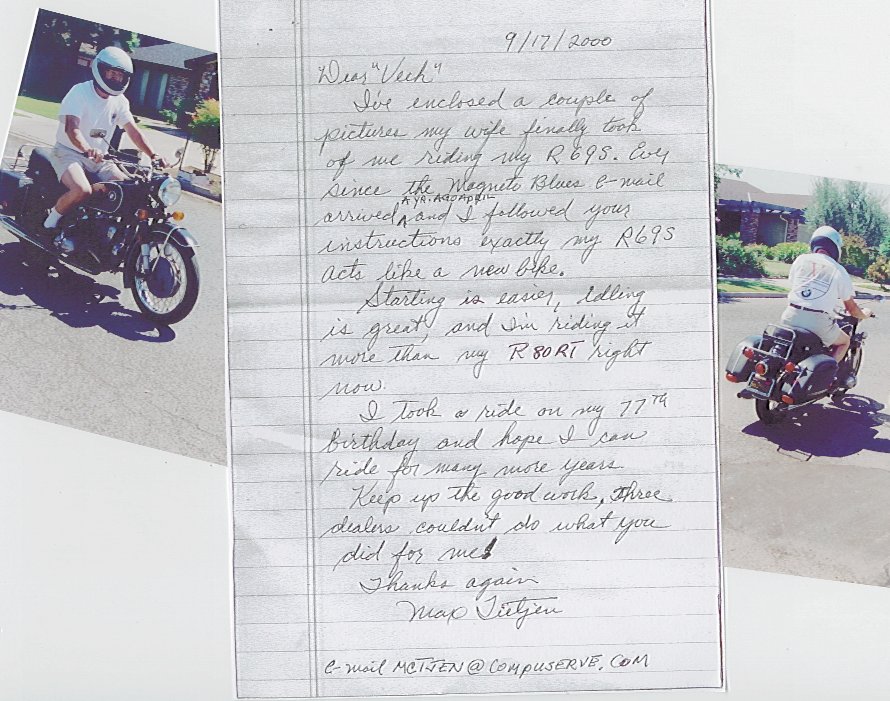 9/17/2000
Dear "Vech"
I've enclosed a couple of
pictures my wife finally took
of me riding my R69S. Ever
since the Magneto Blues e-mail
A YR. AGO APRIL
arrived ^ and I followed your
instructions exactly my R69S
acts like a new bike.
Starting is easier, Idling
is great, and I'm riding it
more than my R80RT right
now.
I took a ride on my 77TH
birthday and hope I can
ride for many more years.
Keep up the good work, three
dealers couldn't do what you
did for me!
Thanks again
Max Tietjen
e-mail MCTJEN@COMPUSERVE.COM